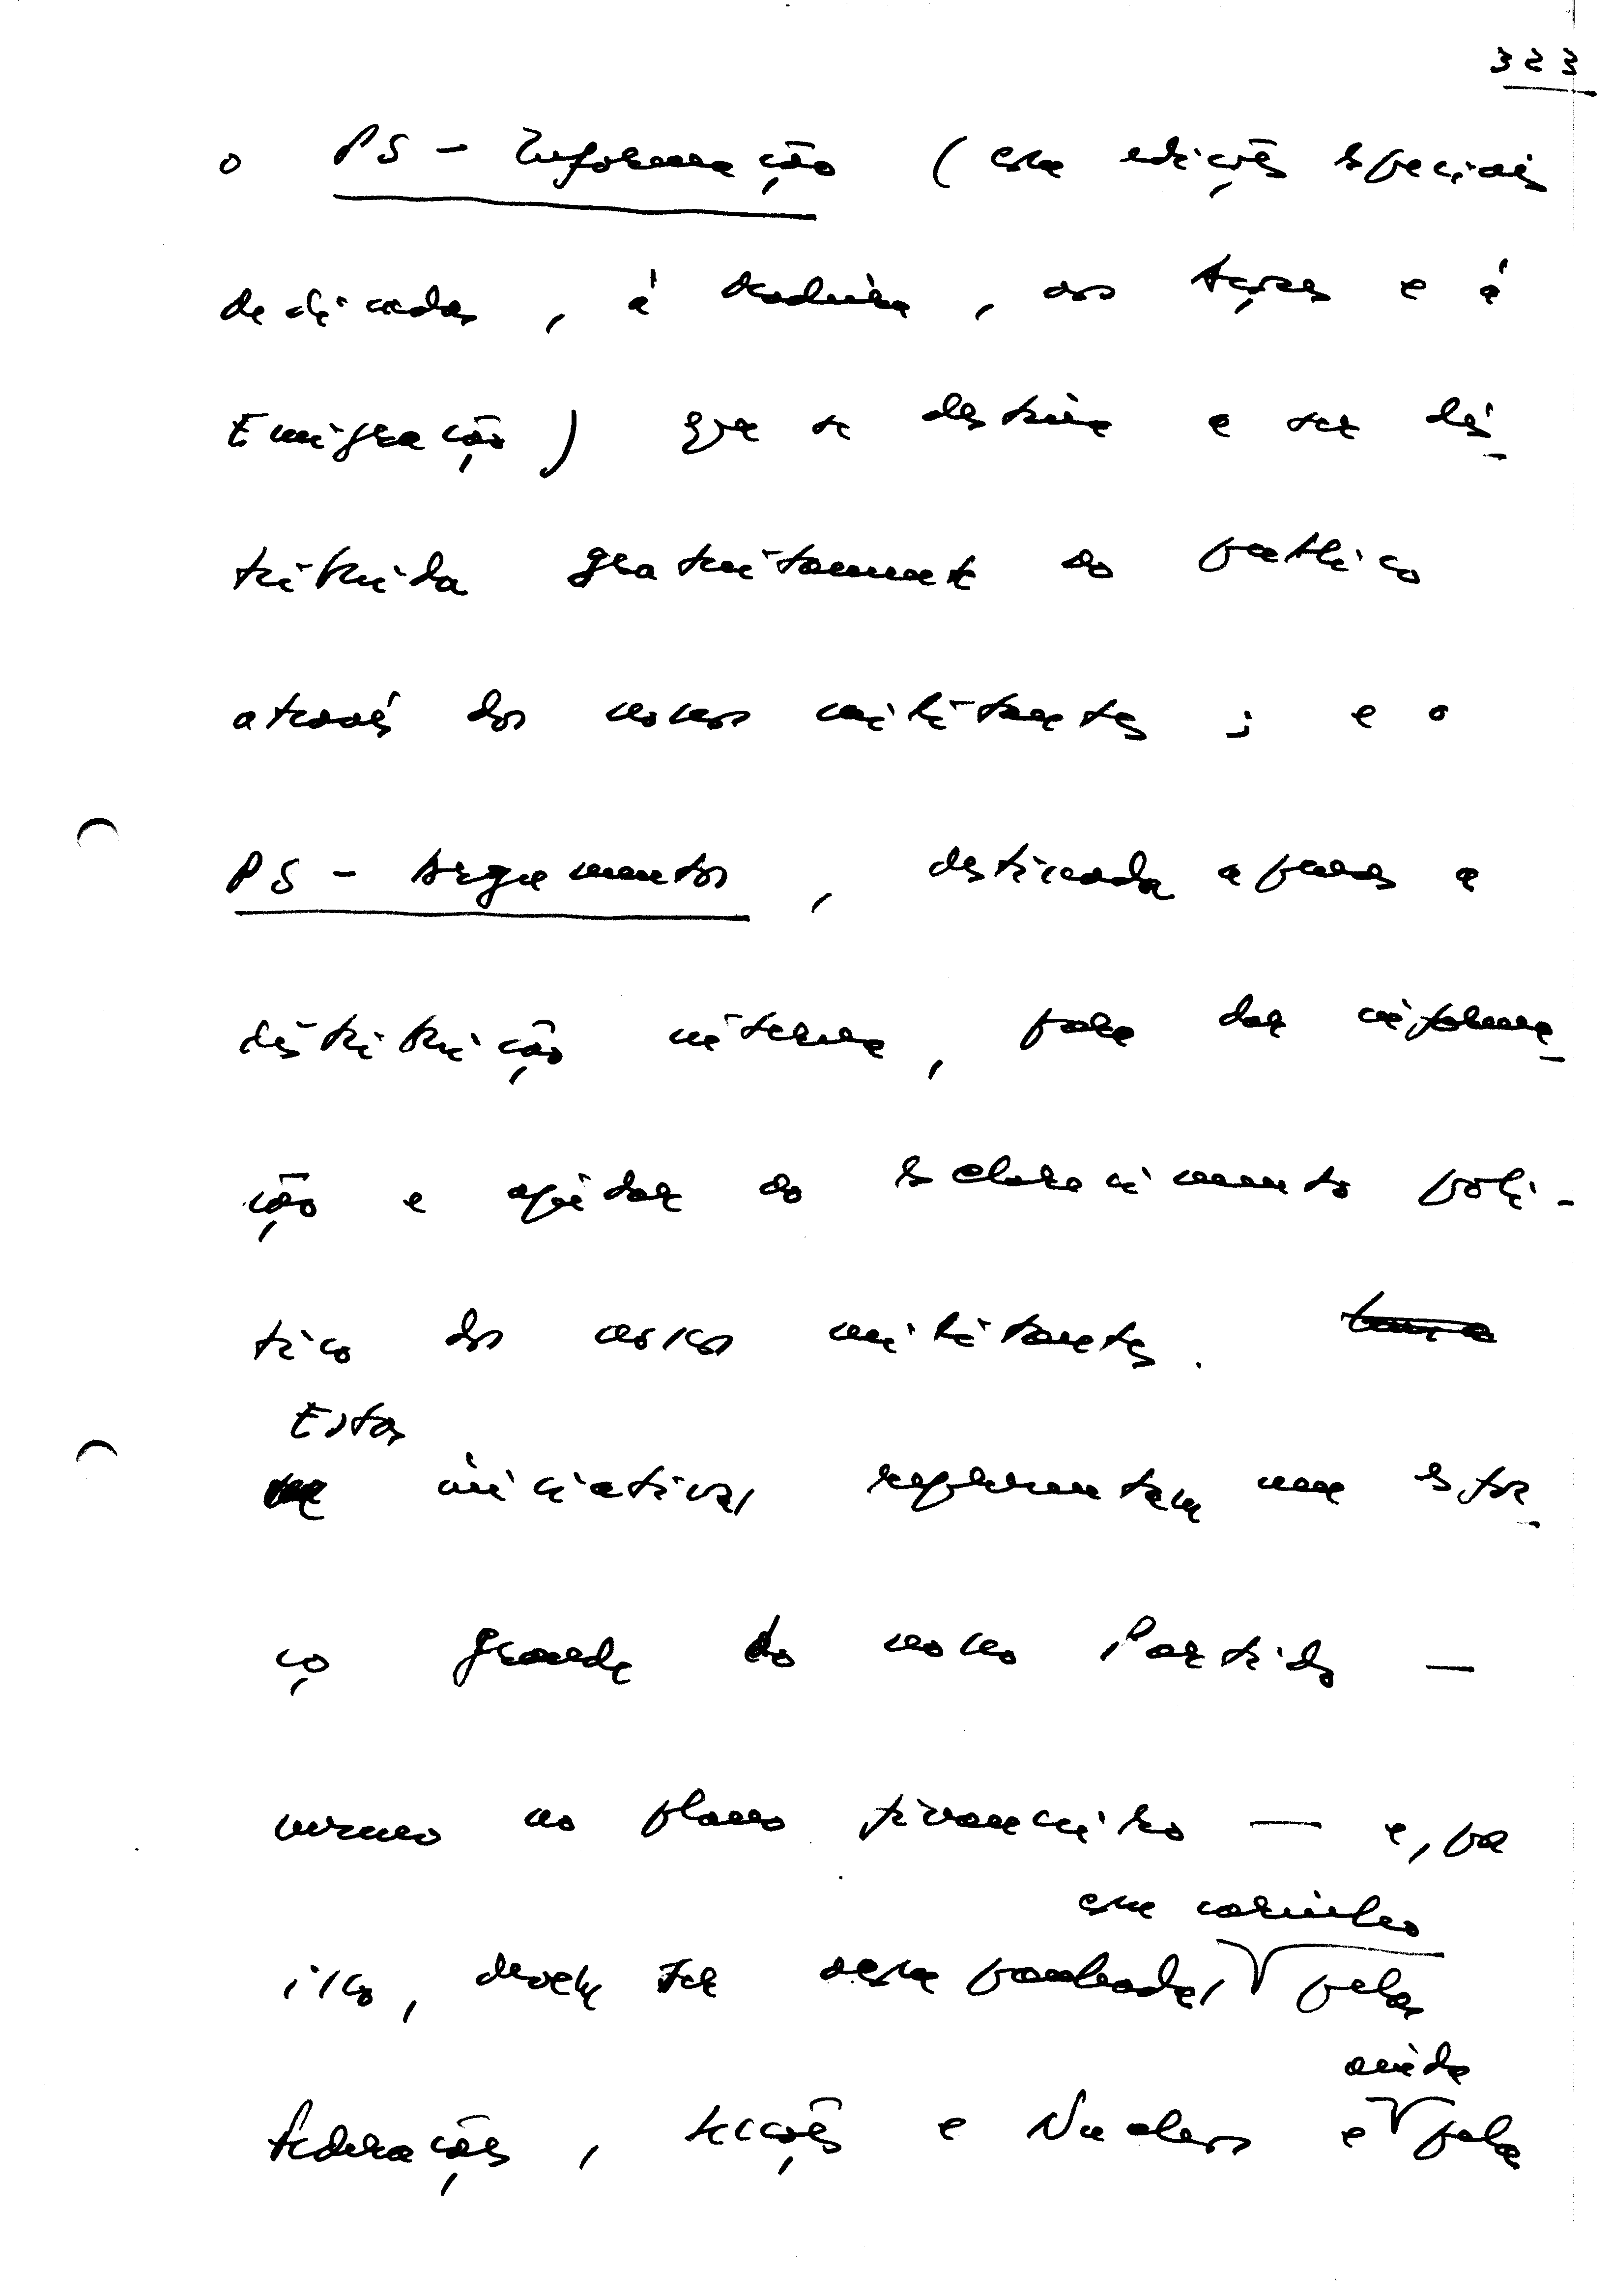 323
o PS - Informação (com edições especiais
dedicadas, à Madeira, aos Açores e à
Emigração) que se destina a ser dis-
tribuida gratuitamente ao público
através dos nossos militantes; e o
PS - Argumentos, destinada apenas a
distribuição interna, para dar informa-
ção e ajudar ao esclarecimento polí-
tico dos nossos militantes.
Estas
iniciativas representam um esfor-
ço grande do nosso Partido —
mesmo no plano financeiro — e, por
com carinho
isso, devem ser acompanhadas pelas
ainda
Federações, Secções e Nucleos e pela